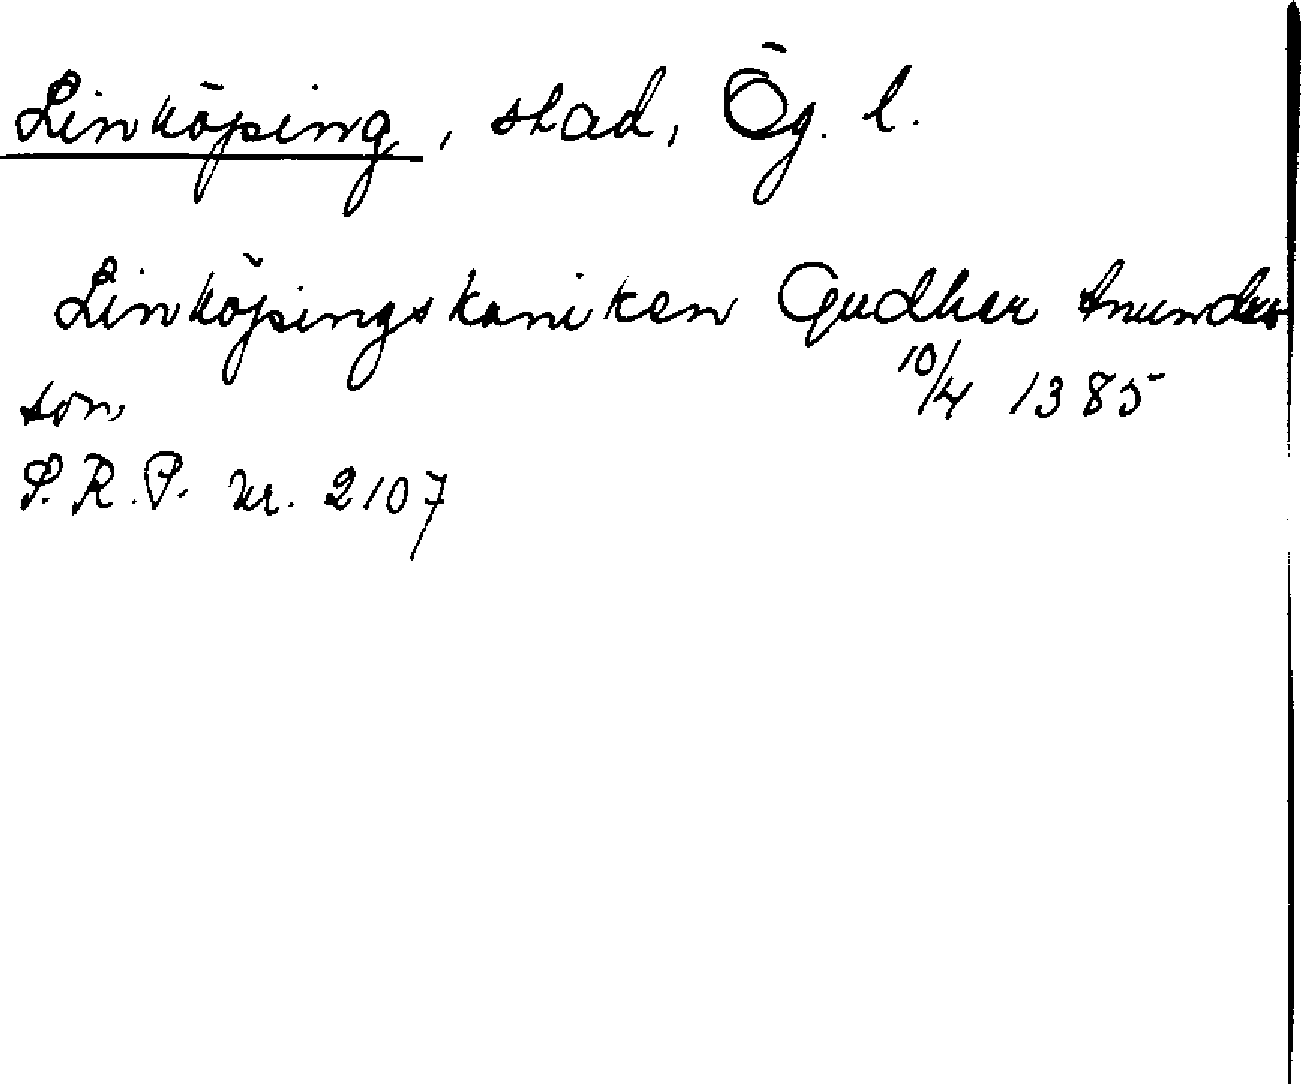 Linköping, stad, Ög. l.
Linköpingskaniken Gudher Anunds
son, 10/4 1385
S.R.P. nr. 2107